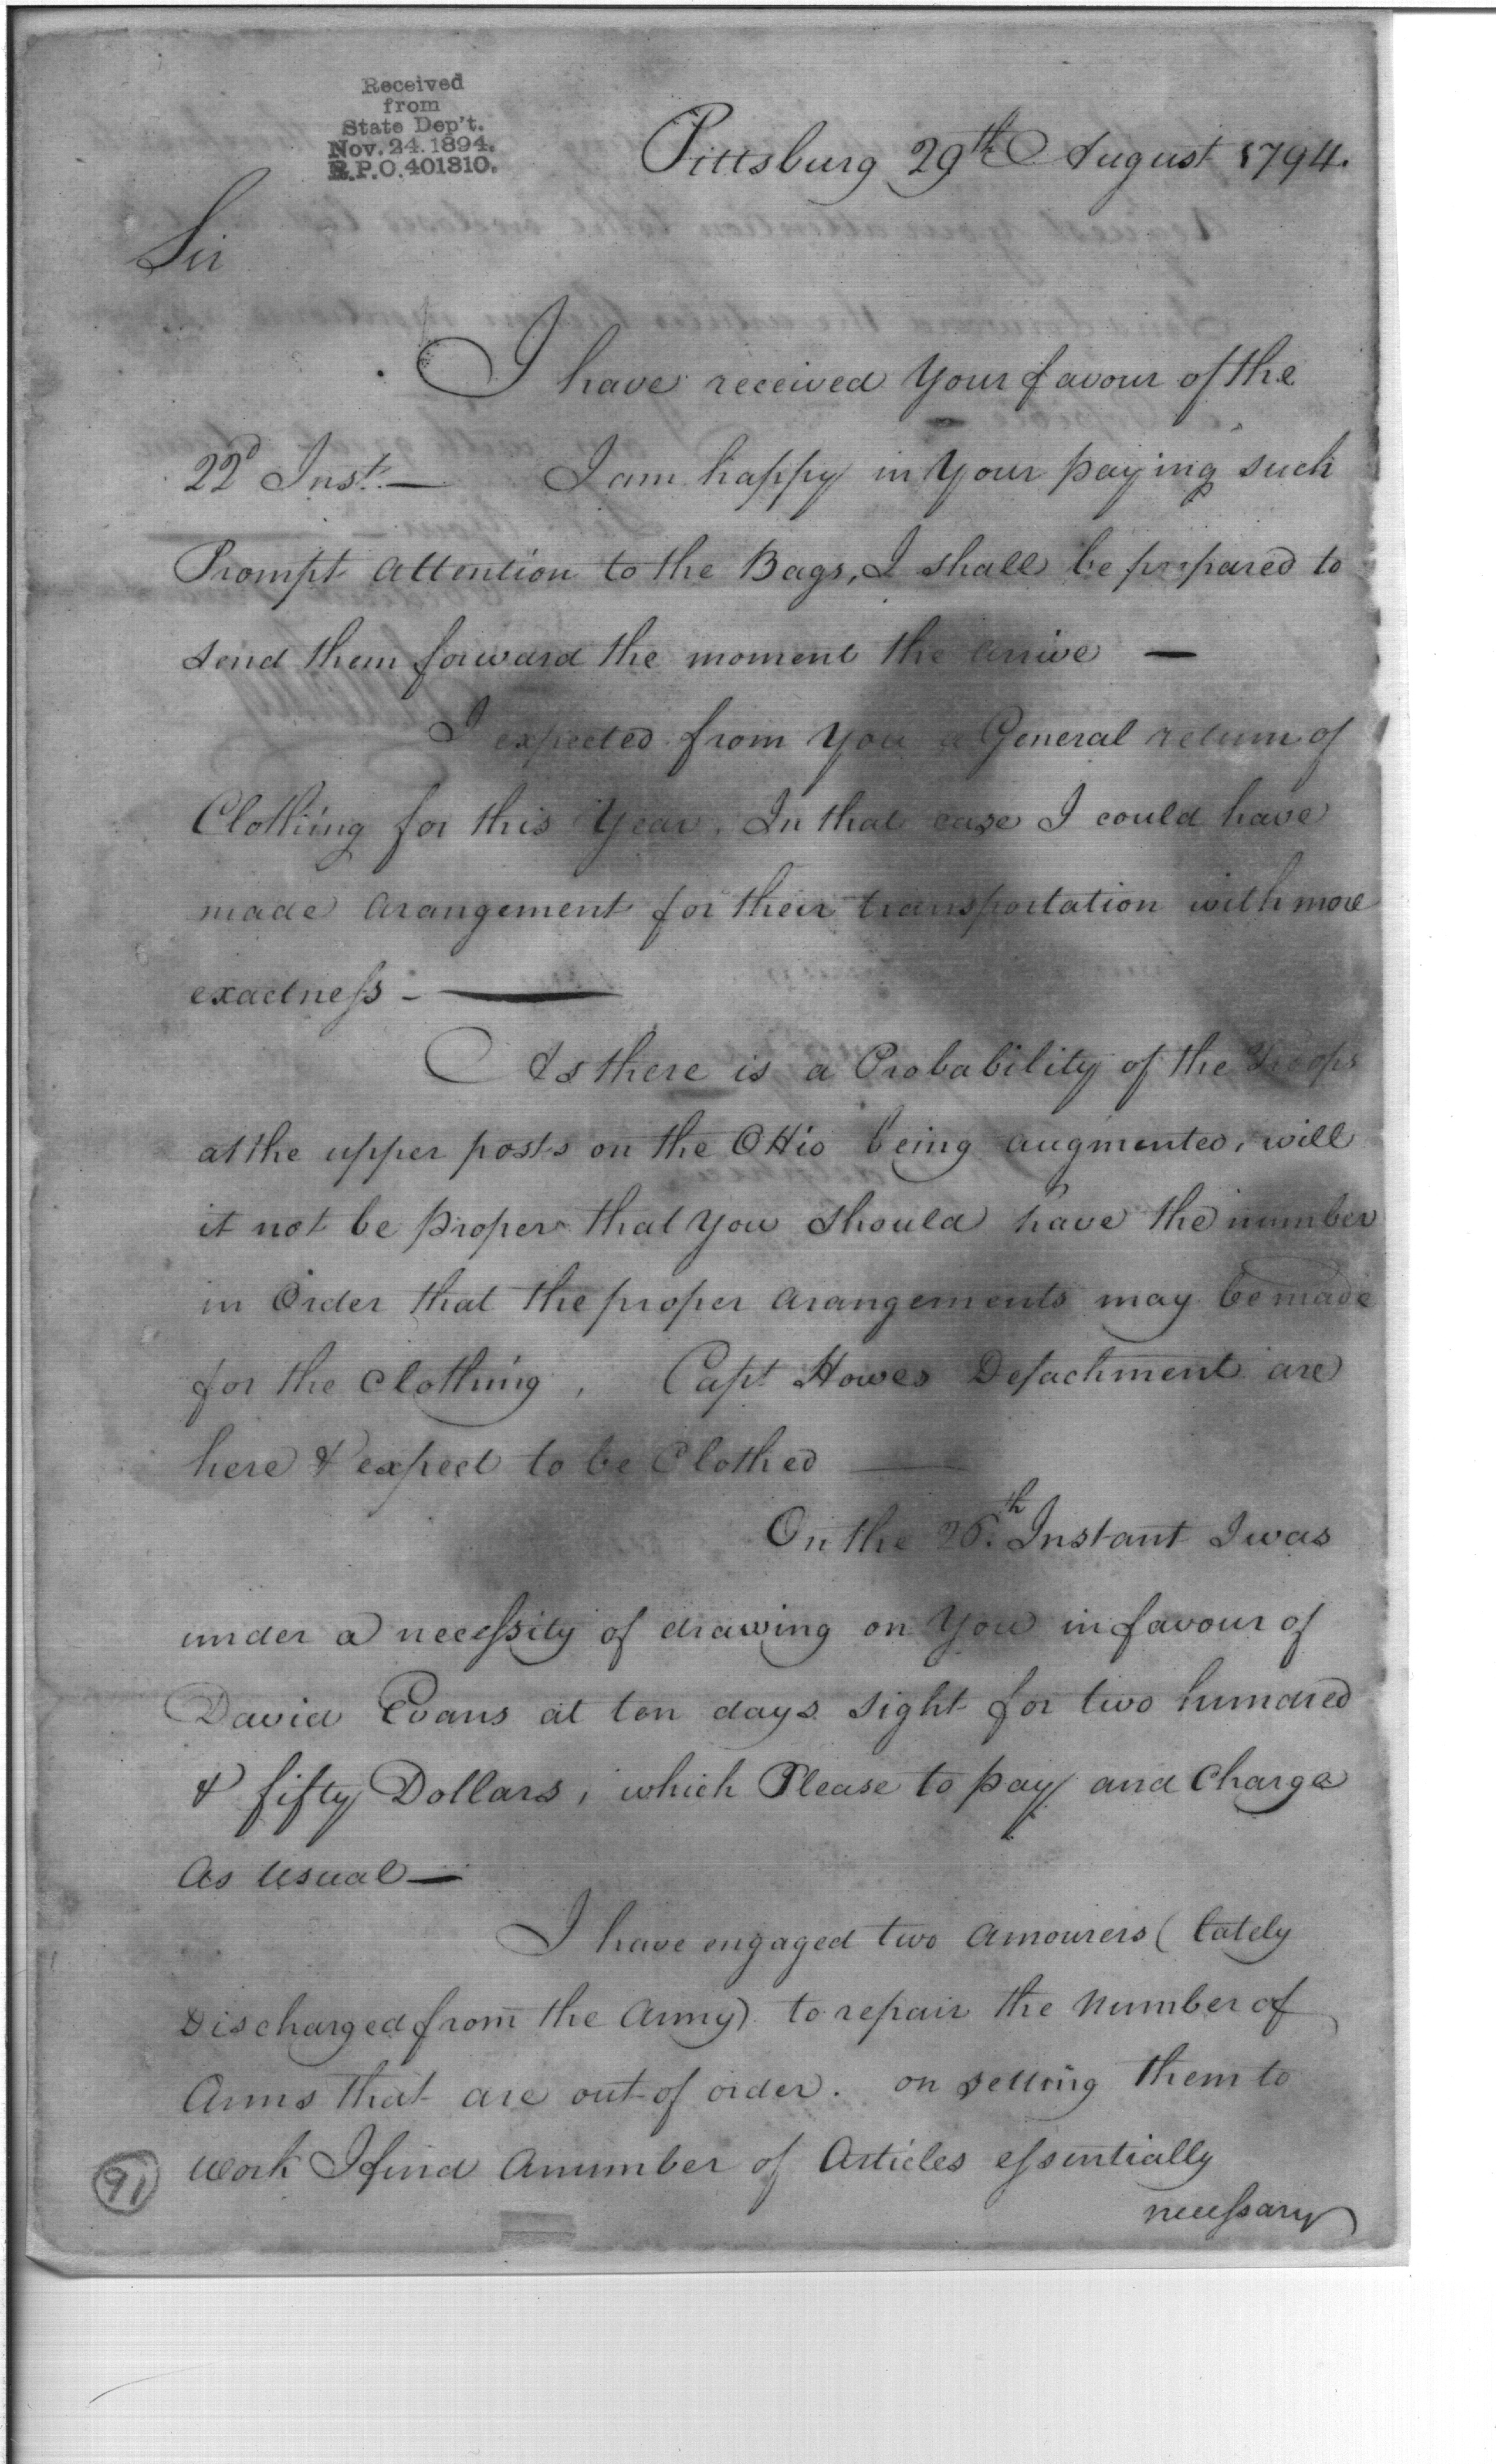 Received
from
State Dep't.
Nov. 24. 1894.
R.P.O. 401810.
Pittsburg 29th August 1794.
Sir
I have received Your favour of the
22d Inst. — I am happy in Your paying such
Prompt Attention to the Bags, I shall be prepared to
send them forward the moment the arrive —
I expected from You a General return of
Clothing for this Year. In that case I could have
made Arangement for their transportation with more
exactness —
As there is a Probability of the troops
at the upper posts on the OHio being augmented, will
it not be proper that You should have the number
in Order that the proper Arangements may be made
for the Clothing, Capt Howes Detachment are
here & expect to be Clothed —
On the 26.th Instant I was
under a necessity of drawing on You in favour of
David Evans at ten days sight for two hundred
& fifty Dollars, which Please to pay and Charge
As Usual —
I have engaged two Amourers (lately
Discharged from the Army) to repair the Number of
Arms that are out of order. on setting them to
Work I find Anumber of Articles essentially
necessary
91